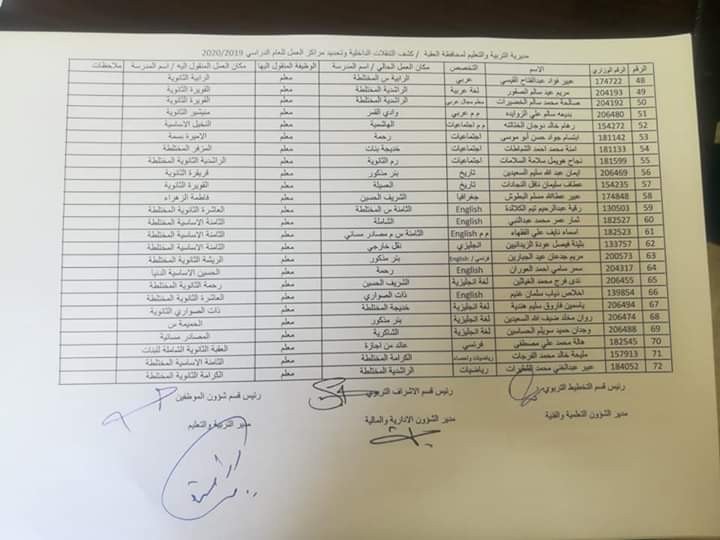 مديرية التربية والتعليم لمحافظة العقبة / كشف التنقلات الداخلية وتحديد مراكز العمل للعام الدراسي 2020/2019
الرقم الرقم الوزاري الاسم التخصص مكان العمل الحالي / اسم المدرسة الوظيفة المنقول اليها مكان العمل المنقول اليه / اسم المدرسة ملاحظات
48 174722 عبير فواد عبدالفتاح القيسي عربي الرابية س المختلطة معلم الرابية الثانوية
49 204193 مريم عيد سالم الصقور لغة عربية الراشدية المختلطة معلم القويرة الثانوية
50 204192 صالحه محمد سالم الخضيرات معلم مجال عربي الراشدية المختلطة معلم القويرة الثانوية
51 206480 بديعه سالم علي الزوايده م م عربي وادي القمر معلم منيشير الثانوية
52 154272 رهام خالد دوجان الختاتنه م م اجتماعيات الهاشمية معلم النخيل الاساسية
53 181142 ابتسام جهاد حسن أبو موسى اجتماعيات رحمة معلم الاميرة بسمة
54 181133 امنة محمد احمد الشماطات اجتماعيات خديجة بنات معلم المزفر المختلطة
55 181599 نجاح هويمل سلامة السلامات اجتماعيات رم الثانوية معلم الراشدية الثانوية المختلطة
56 206469 ايمان عبد الله سليم السعيدين تاريخ بئر مذكور معلم قريقرة الثانوية
57 154235 عطاف سليمان نافل النجادات تاريخ معلم القويرة الثانوية
58 174848 عبير عطاالله مسلم البطوش جغرافيا الشريف الحسين معلم فاطمة الزهراء
59 130503 رقية عبدالرحيم تيم الكلالدة English الثامنة س المختلطة معلم العاشرة الثانوية المختلطة
60 182527 ثمار عمر محمد عبدالنبي English الشاملة معلم الثامنة الاساسية المختلطة
61 182523 اسماء نايف علي الفقهاء م م English الثامنة س م مصادر مسائي معلم الثامنة الاساسية المختلطة
62 133757 بثينة فيصل عودة الزيدانيين انجليزي نقل خارجي معلم الثامنة الاساسية المختلطة
63 200573 مريم جدعان عيد الجبارين فرنسي / English بئر مذكور معلم الريشة الثانوية المختلطة
64 204317 سمر سامي احمد العوران English رحمة معلم الحسين الاساسية الدنيا
65 206455 ندى فرج محمد لغة انجليزية الشريف الحسين معلم رحمة الثانوية المختلطة
66 139854 اخلاص ذياب سلمان غنيم English ذات الصواري معلم العاشرة الثانوية المختلطة
67 206494 ياسمين فاروق سليم هندية لغة انجليزية خديجة المختلطة معلم ذات الصواري الثانوية
68 206474 روان مخلد ضيف الله السعيدين لغة انجليزية بئر مذكور معلم الحميمة س
69 206488 وجدان حميد سويلم الحساسين لغة انجليزية الشاكرية معلم المصادر مسائية
70 182545 هالة محمد علي مصطفى فرنسي عائد من اجازة معلم العقبة الثانوية الشاملة للبنات
71 157913 مليحة خالد محمد الفرجات رياضيات واحصاء الكرامة المختلطة معلم الثامنة الاساسية المختلطة
72 184052 عبير عبدالغني محمد رياضيات الثامنة المختلطة معلم الكرامة الثانوية المختلطة
رئيس قسم التخطيط التربوي رئيس قسم الاشراف التربوي رئيس قسم شؤون الموظفين
مدير الشؤون التعلمية والفنية مدير الشؤون الادارية والمالية مدير التربية والتعليم